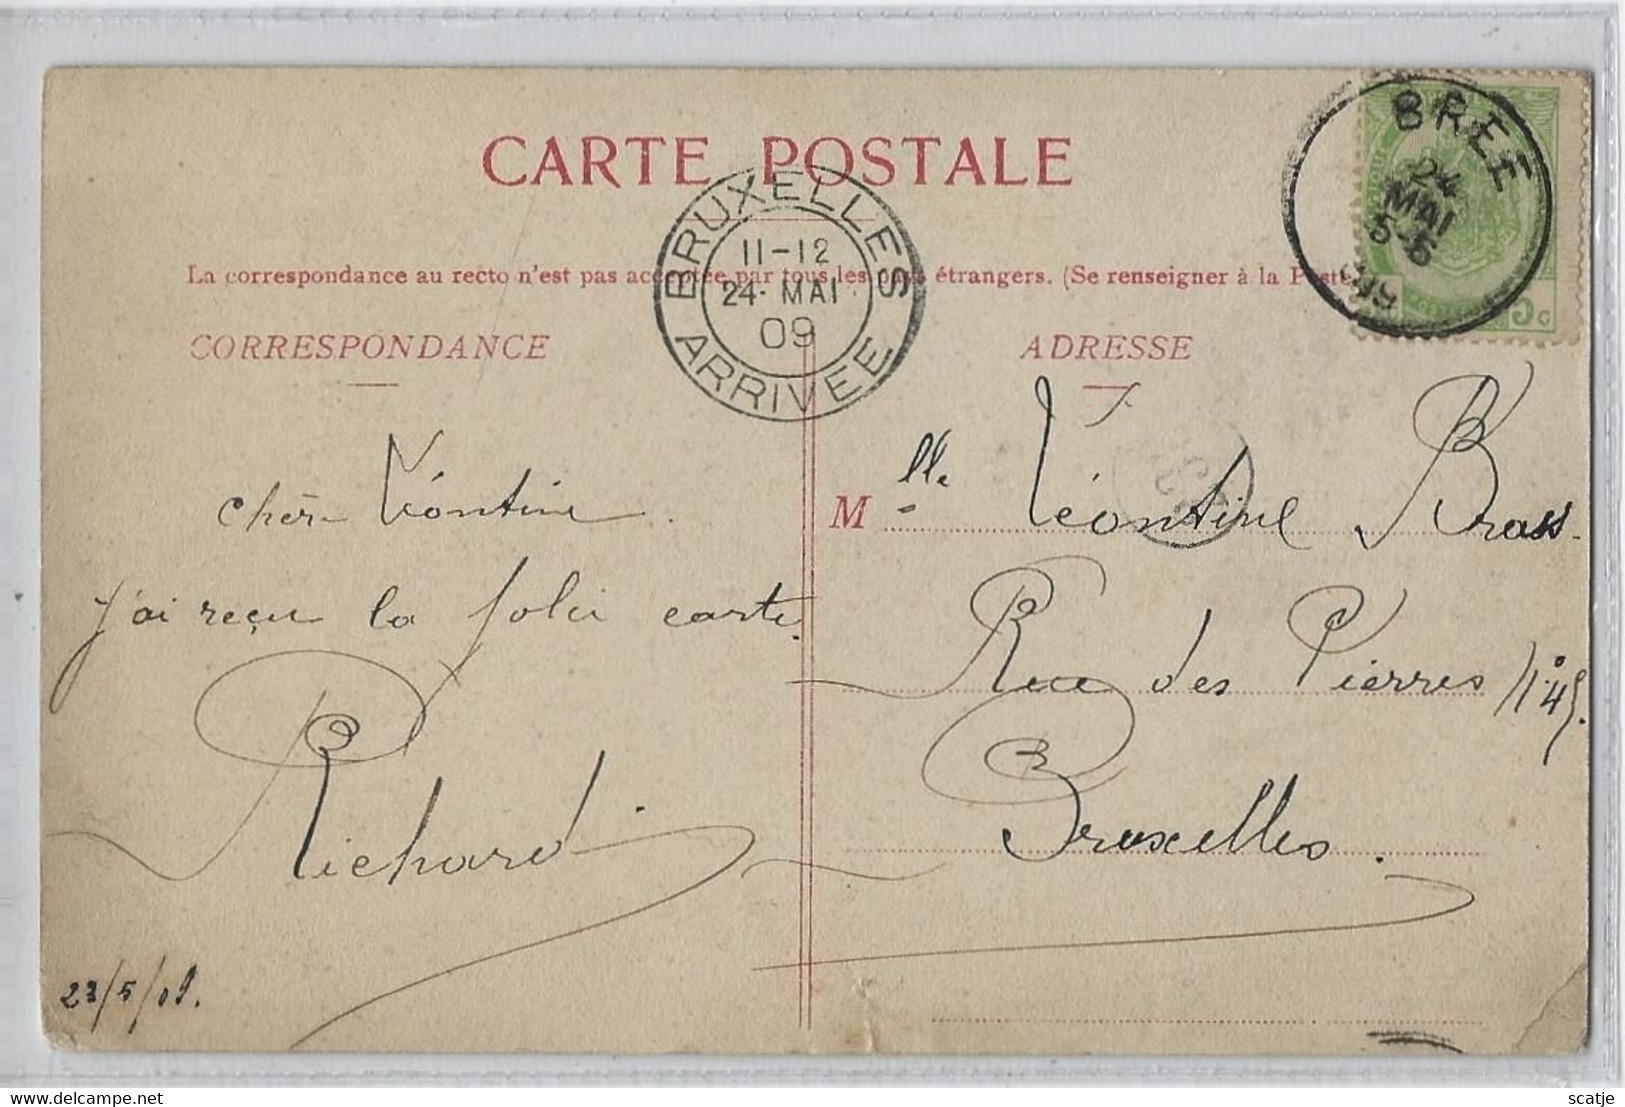 CARTE POSTALE
La correspondance au recto n'est pas acceptée par tous les pays étrangers. (Se renseigner à la Poste
BRUXELLES
11-12
24 MAI
09
ARRIVEE
BREE
24
MAI
5-6
09
5 C
CORRESPONDANCE
chère Léontine.
j'ai reçu la jolie carte.
Richard.
23/5/09.
ADRESSE
Mlle Léontine Brass.
Rue des Pierres N° 45.
Bruxelles.
delcampe.net
scatje